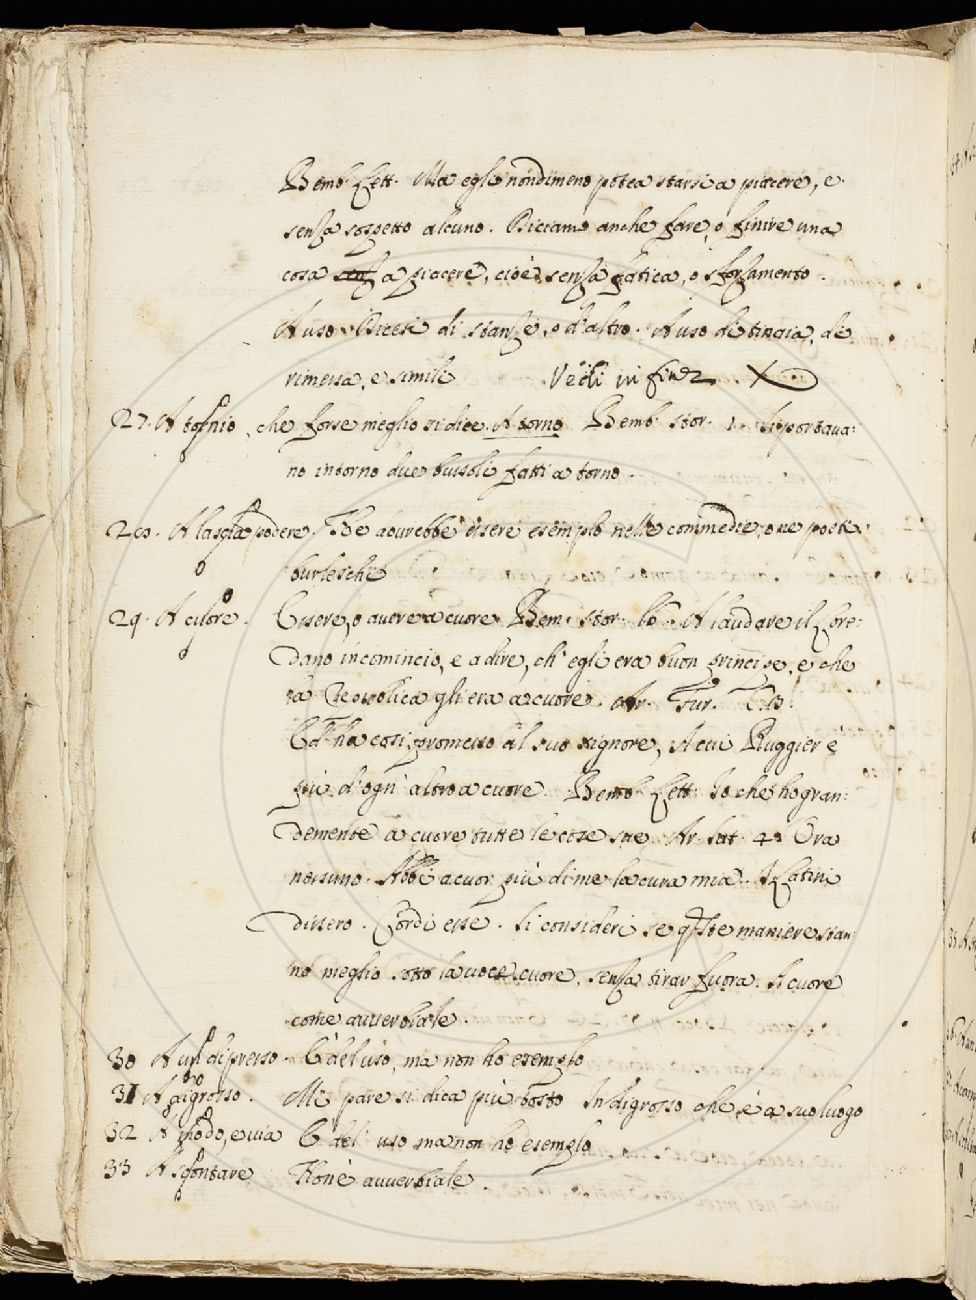 Bemb. Lett. Ma egli nondimeno potea starsi a piacere, e
senza sospetto alcuno. Diciamo anche fare, o finire una
cosa senz a piacere, cioè senza fatica, o sforzamento.
A uso. Dicesi di stanze, o d'altro. A uso di tinaia, di
rimessa, e simili Vedi in fine X
27. A tornio, che forse meglio si dice A torno Bemb. stor. 1. Si portava:
no intorno due bussoli fatti a torno.
28. A lascia podere. Ve ne dovrebbe essere esemplo nelle commedie, o ne poeti
burleschi
29. A cuore. Essere, o avere a cuore Bem. stor. 16. A laudare il Lore:
dano incominciò, e a dire, ch'egli era buon principe, e che
la Republica gli era a cuore. Ar. Fur.
Ch'ha così promesso al suo signore, A cui Ruggier è
più d'ogn' altro a cuore. Bemb. Lett. Io che ho gran:
demente a cuore tutte le cose sue. Ar. sat. 4. Ora
nessuno Abbi a cuor più di me la cura mia. I Latini
dissero. Cordi esse. Si consideri se q.ste maniere stan:
no meglio sotto la voce cuore, senza tirar fuora. A cuore
come avverbiale.
30 A un di presso. È del uso, ma non ho esemplo
31 A digrosso. Mi pare si dica più tosto Indigrosso che è a suo luogo
32 A modo, e via È del' uso ma non ho esemplo
33 A scontare Non è avverbiale.